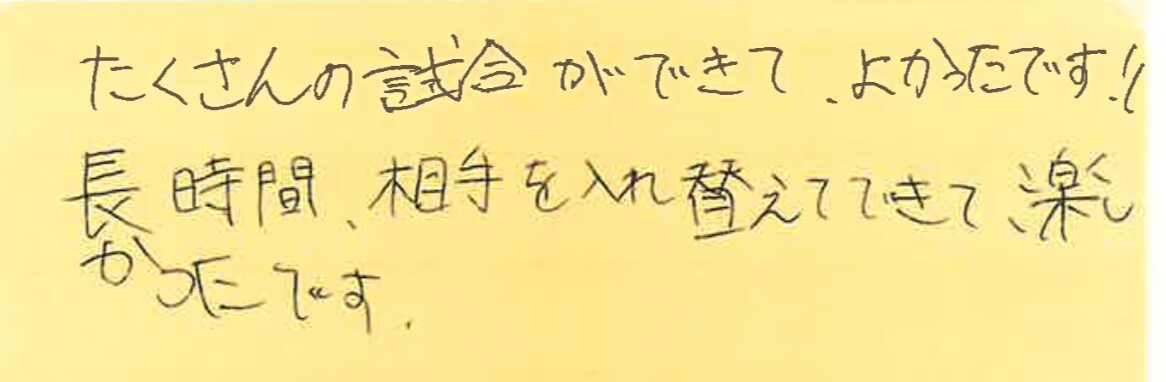 たくさんの試合ができて、よかったです!!
長時間、相手を入れ替えてできて、楽し
かったです.